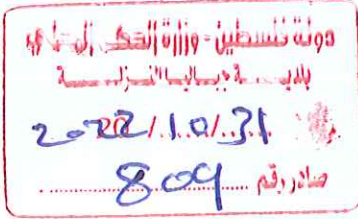 دولة فلسطين - وزارة الحكم المحلي
بلدية جباليا النزلة
2022/10/31
صادر رقم 809